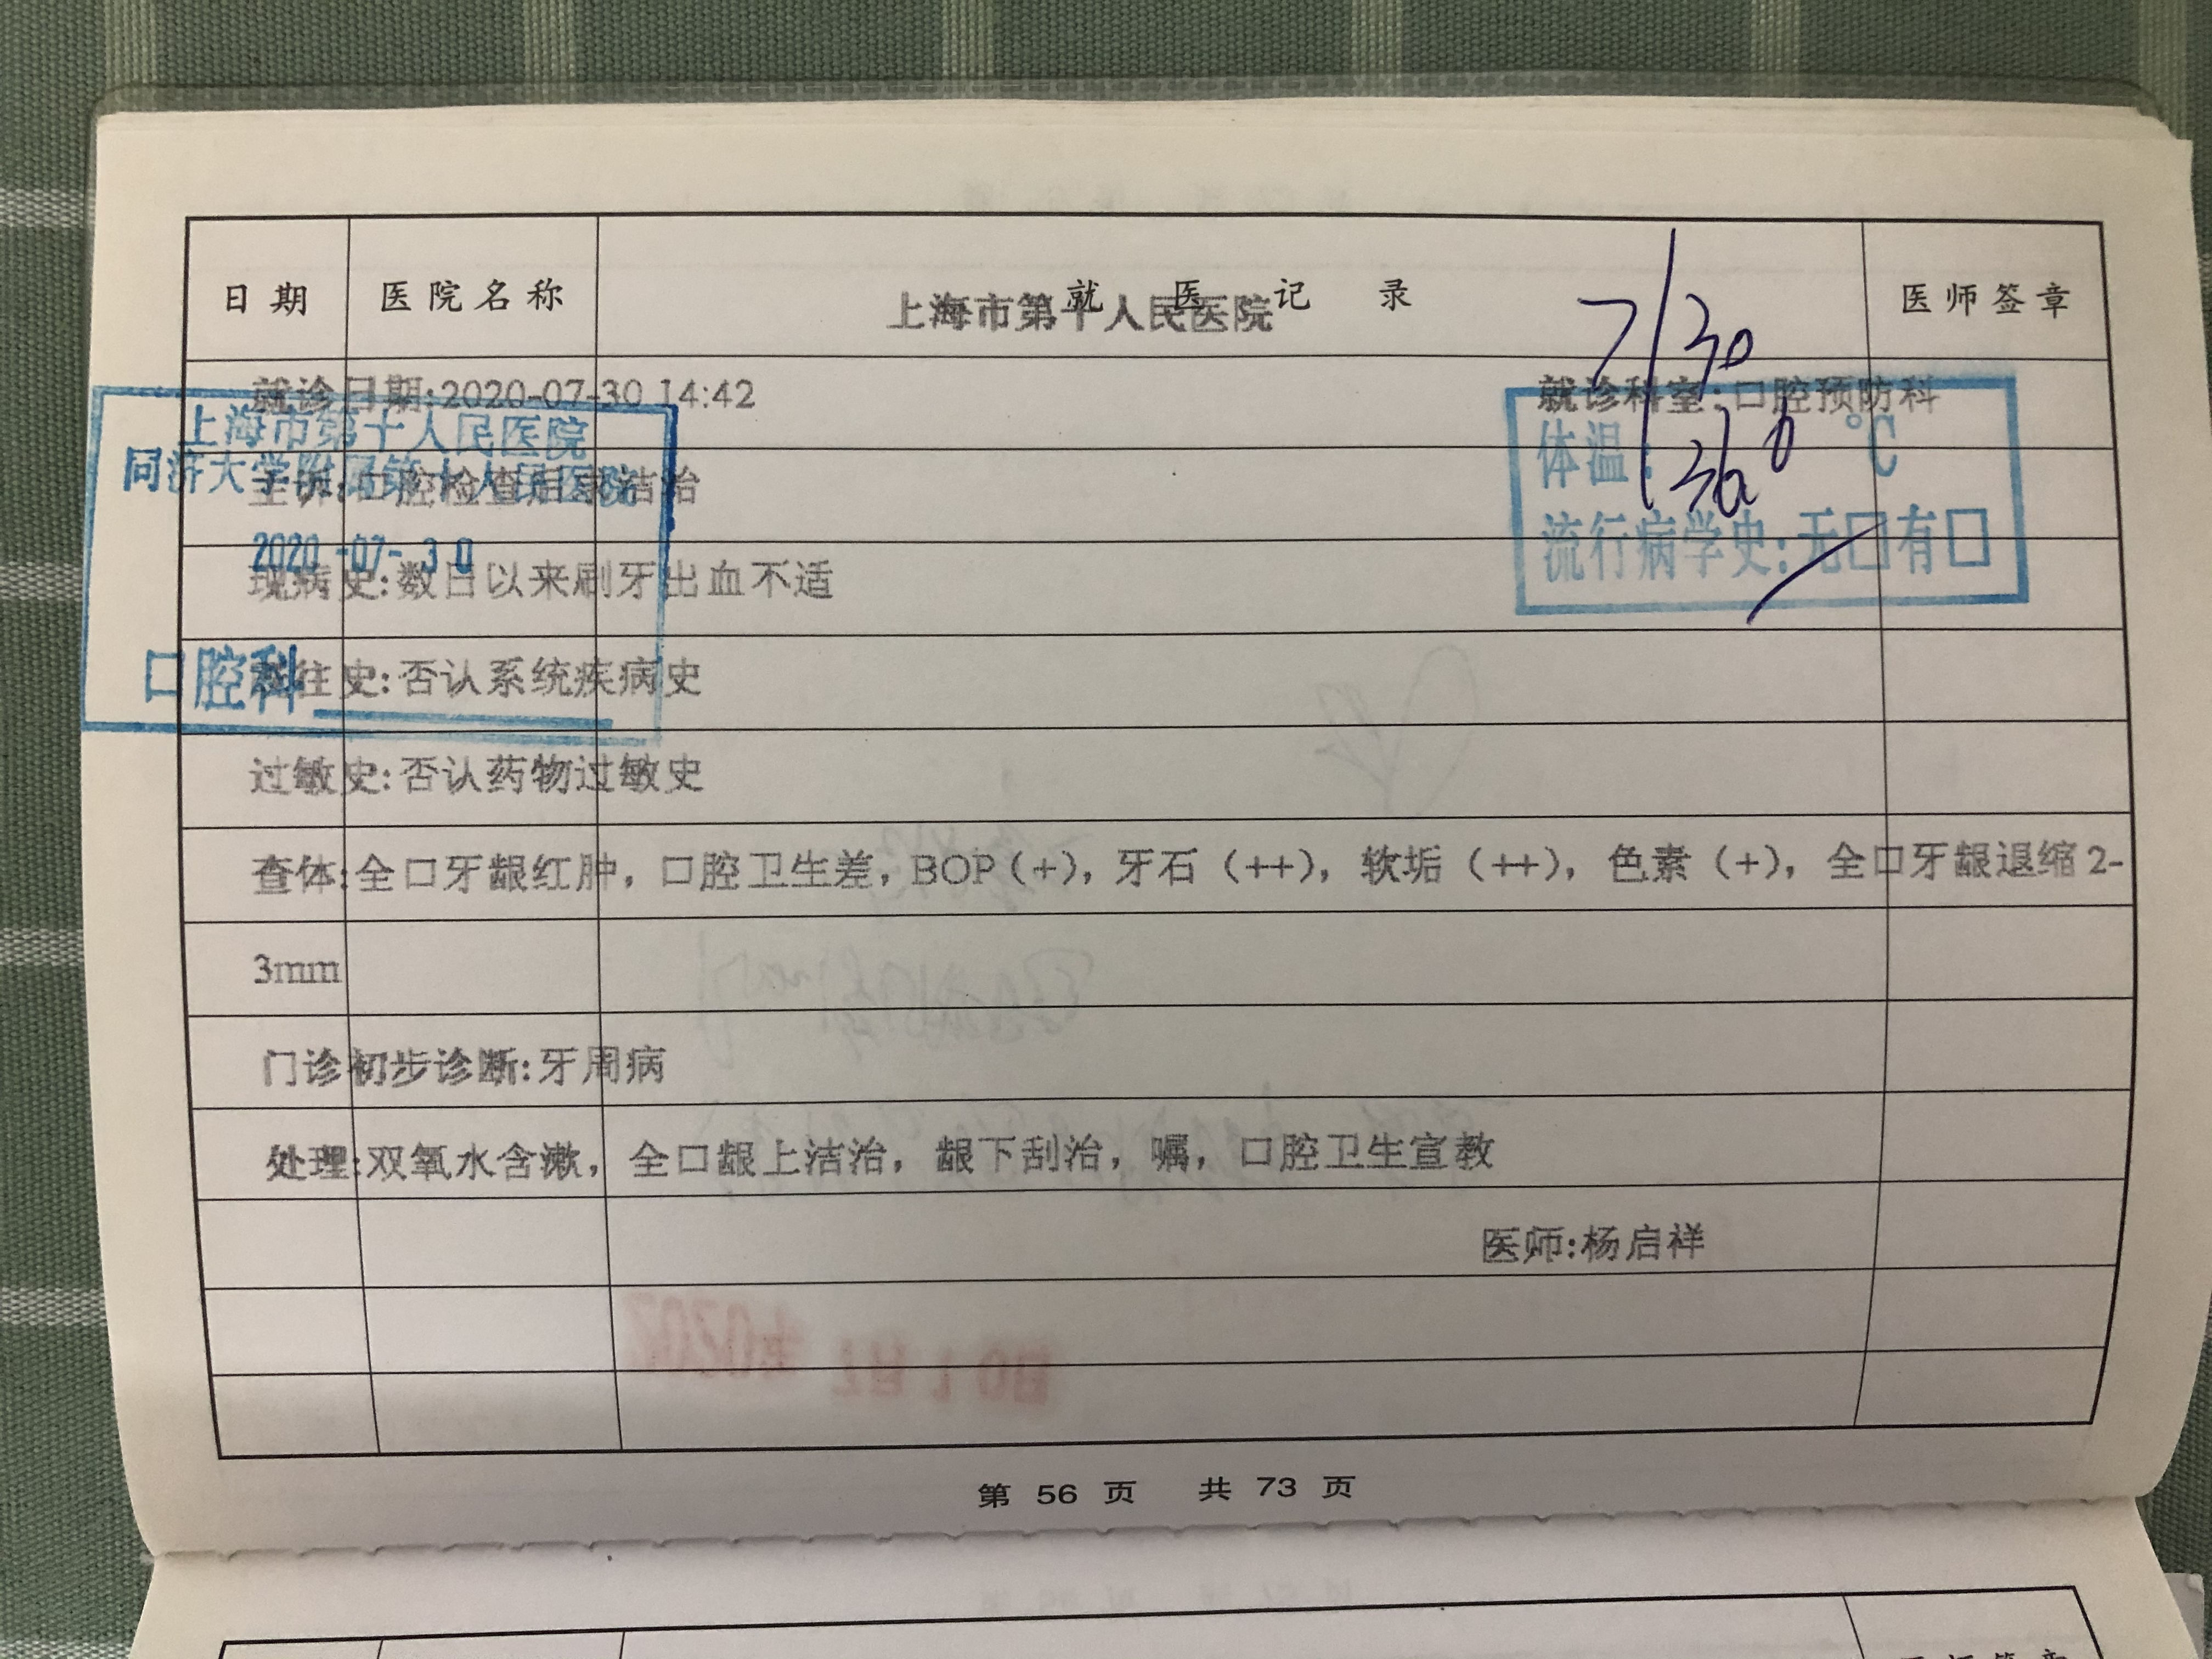 日期 医院名称 就医记录 医师签章
上海市第十人民医院
7/30
就诊日期:2020-07-30 14:42 就诊科室:口腔预防科
上海市第十人民医院
同济大学附属第十人民医院
体温: 36 °C
主诉:口腔检查后求洁治
2020-07-30
流行病学史:无口有口
现病史:数日以来刷牙出血不适
口腔科
既往史:否认系统疾病史
过敏史:否认药物过敏史
查体:全口牙龈红肿，口腔卫生差，BOP（+），牙石（++），软垢（++），色素（+），全口牙龈退缩2-
3mm
门诊初步诊断:牙周病
处理:双氧水含漱，全口龈上洁治，龈下刮治，嘱，口腔卫生宣教
医师:杨启祥
第 56 页 共 73 页